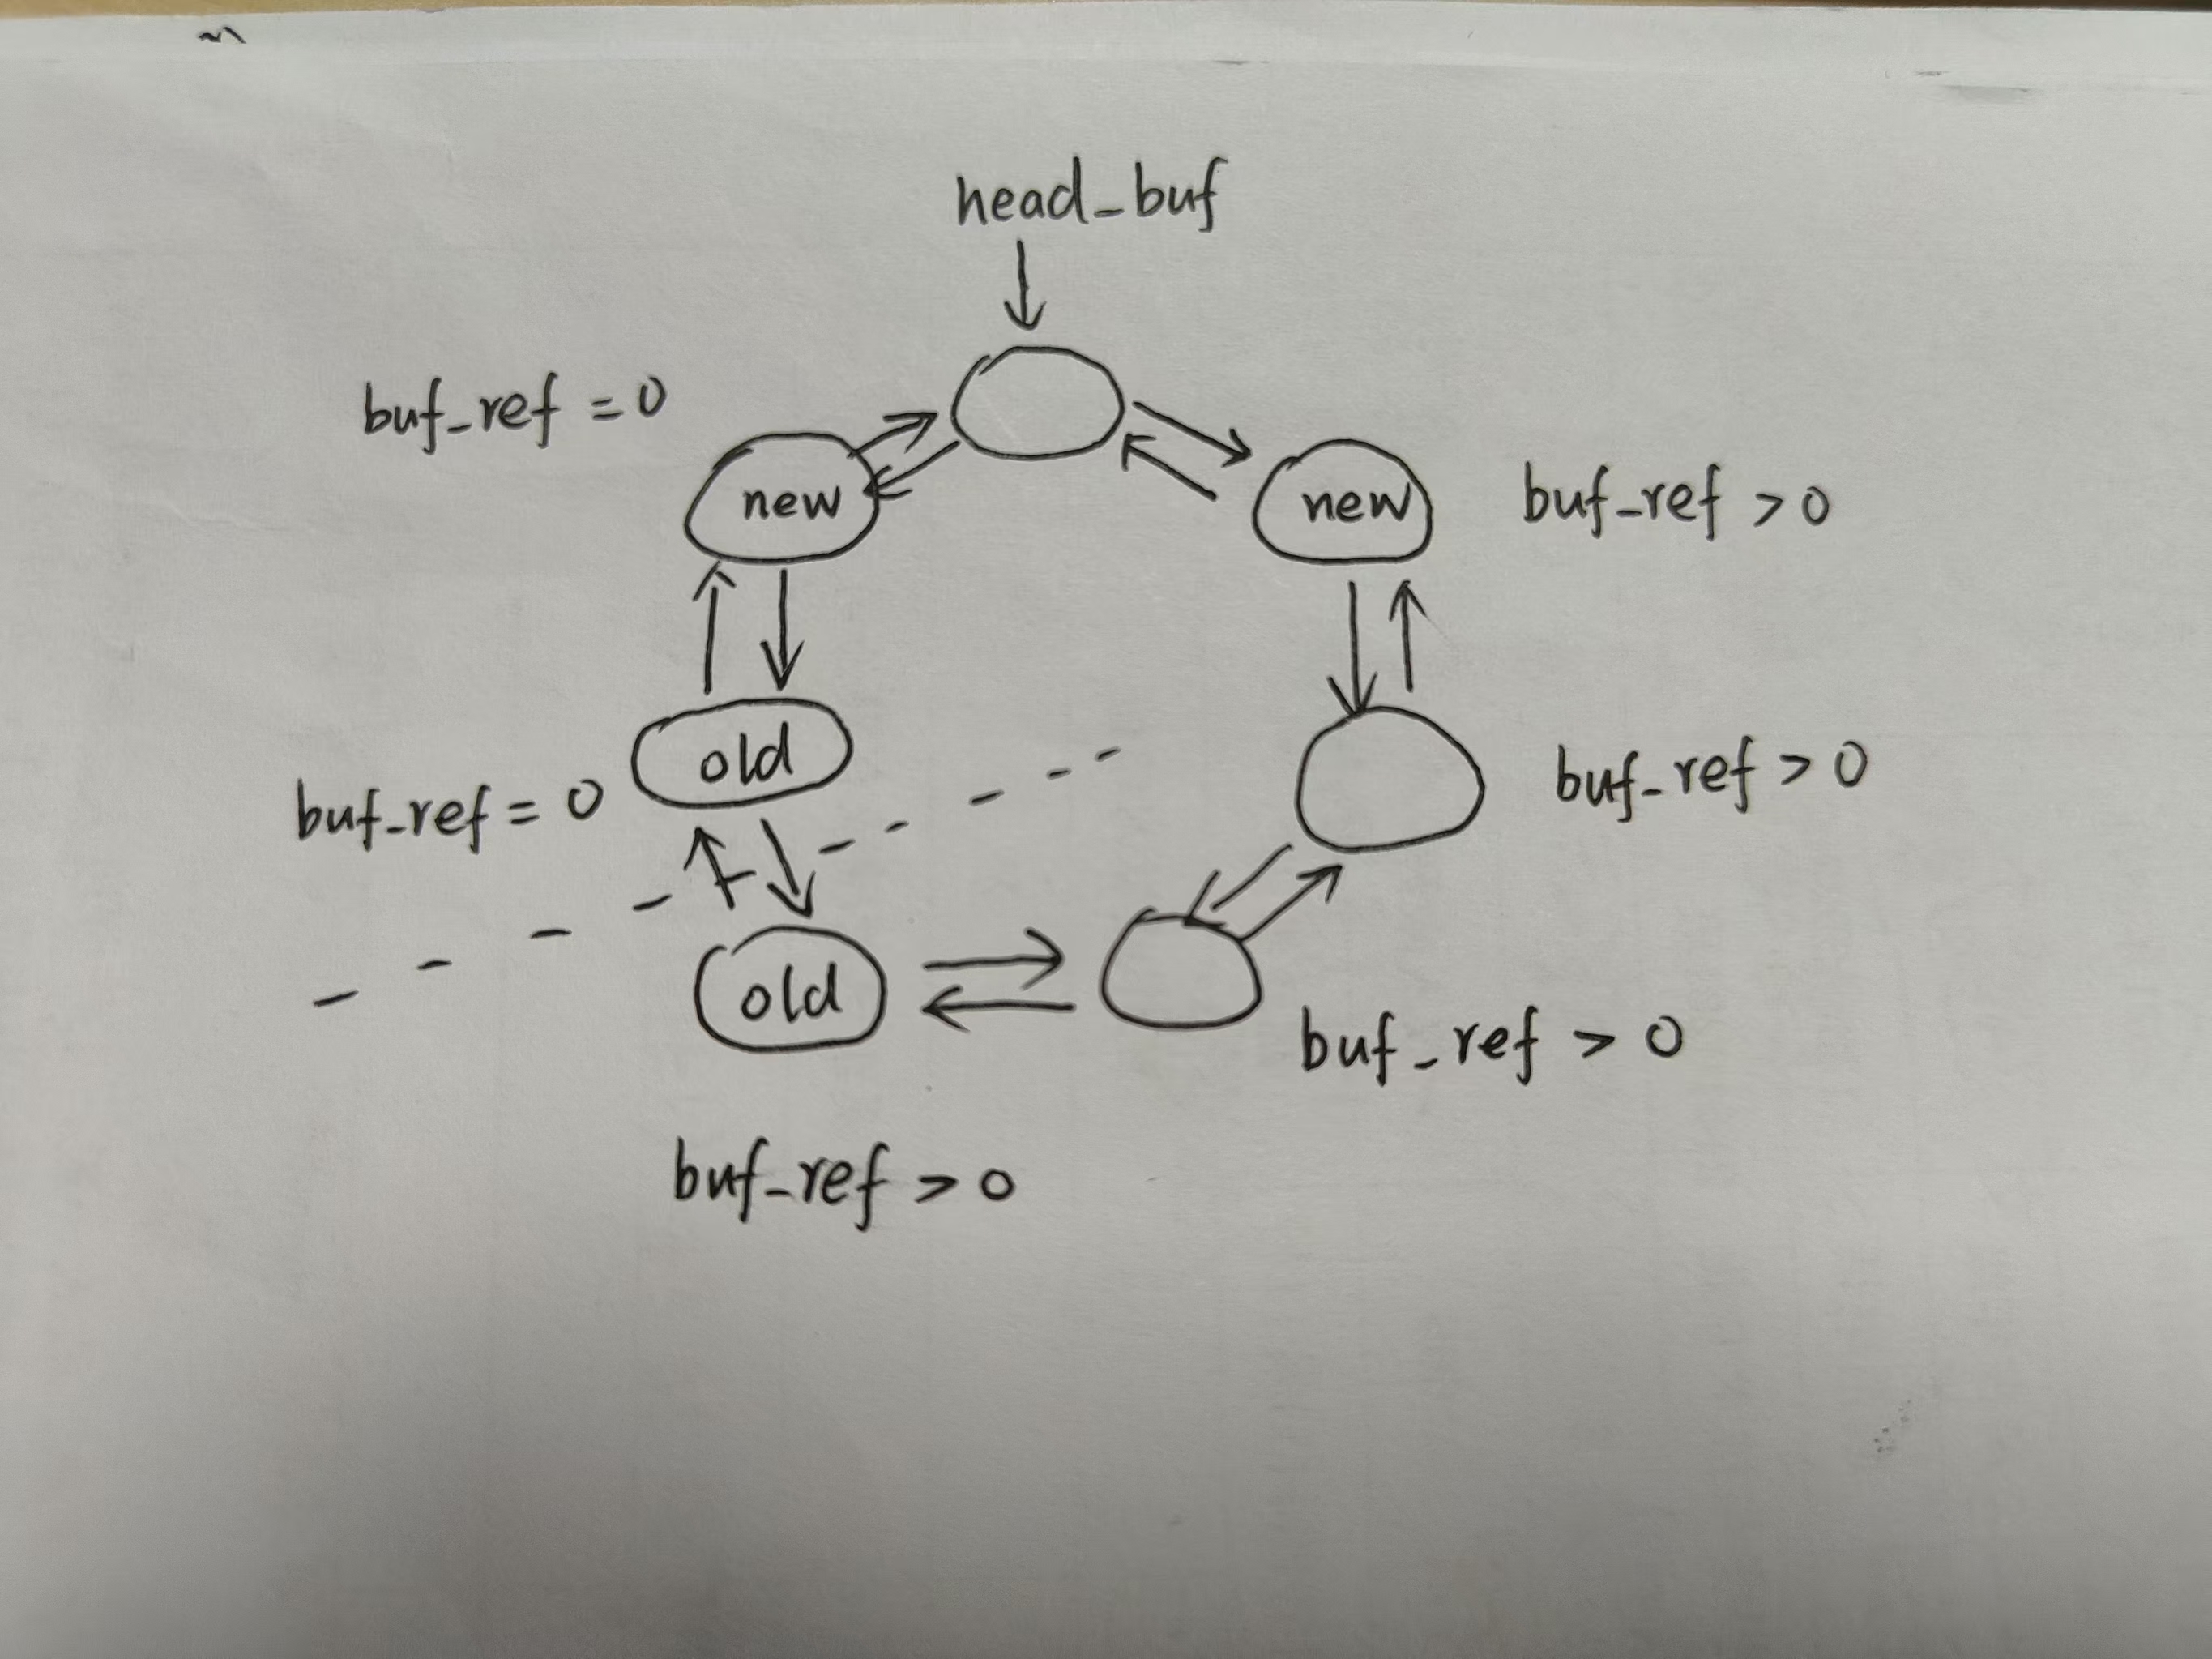 head_buf
buf_ref = 0
new
new
buf_ref > 0
old
buf_ref > 0
buf_ref = 0
old
buf_ref > 0
buf_ref > 0